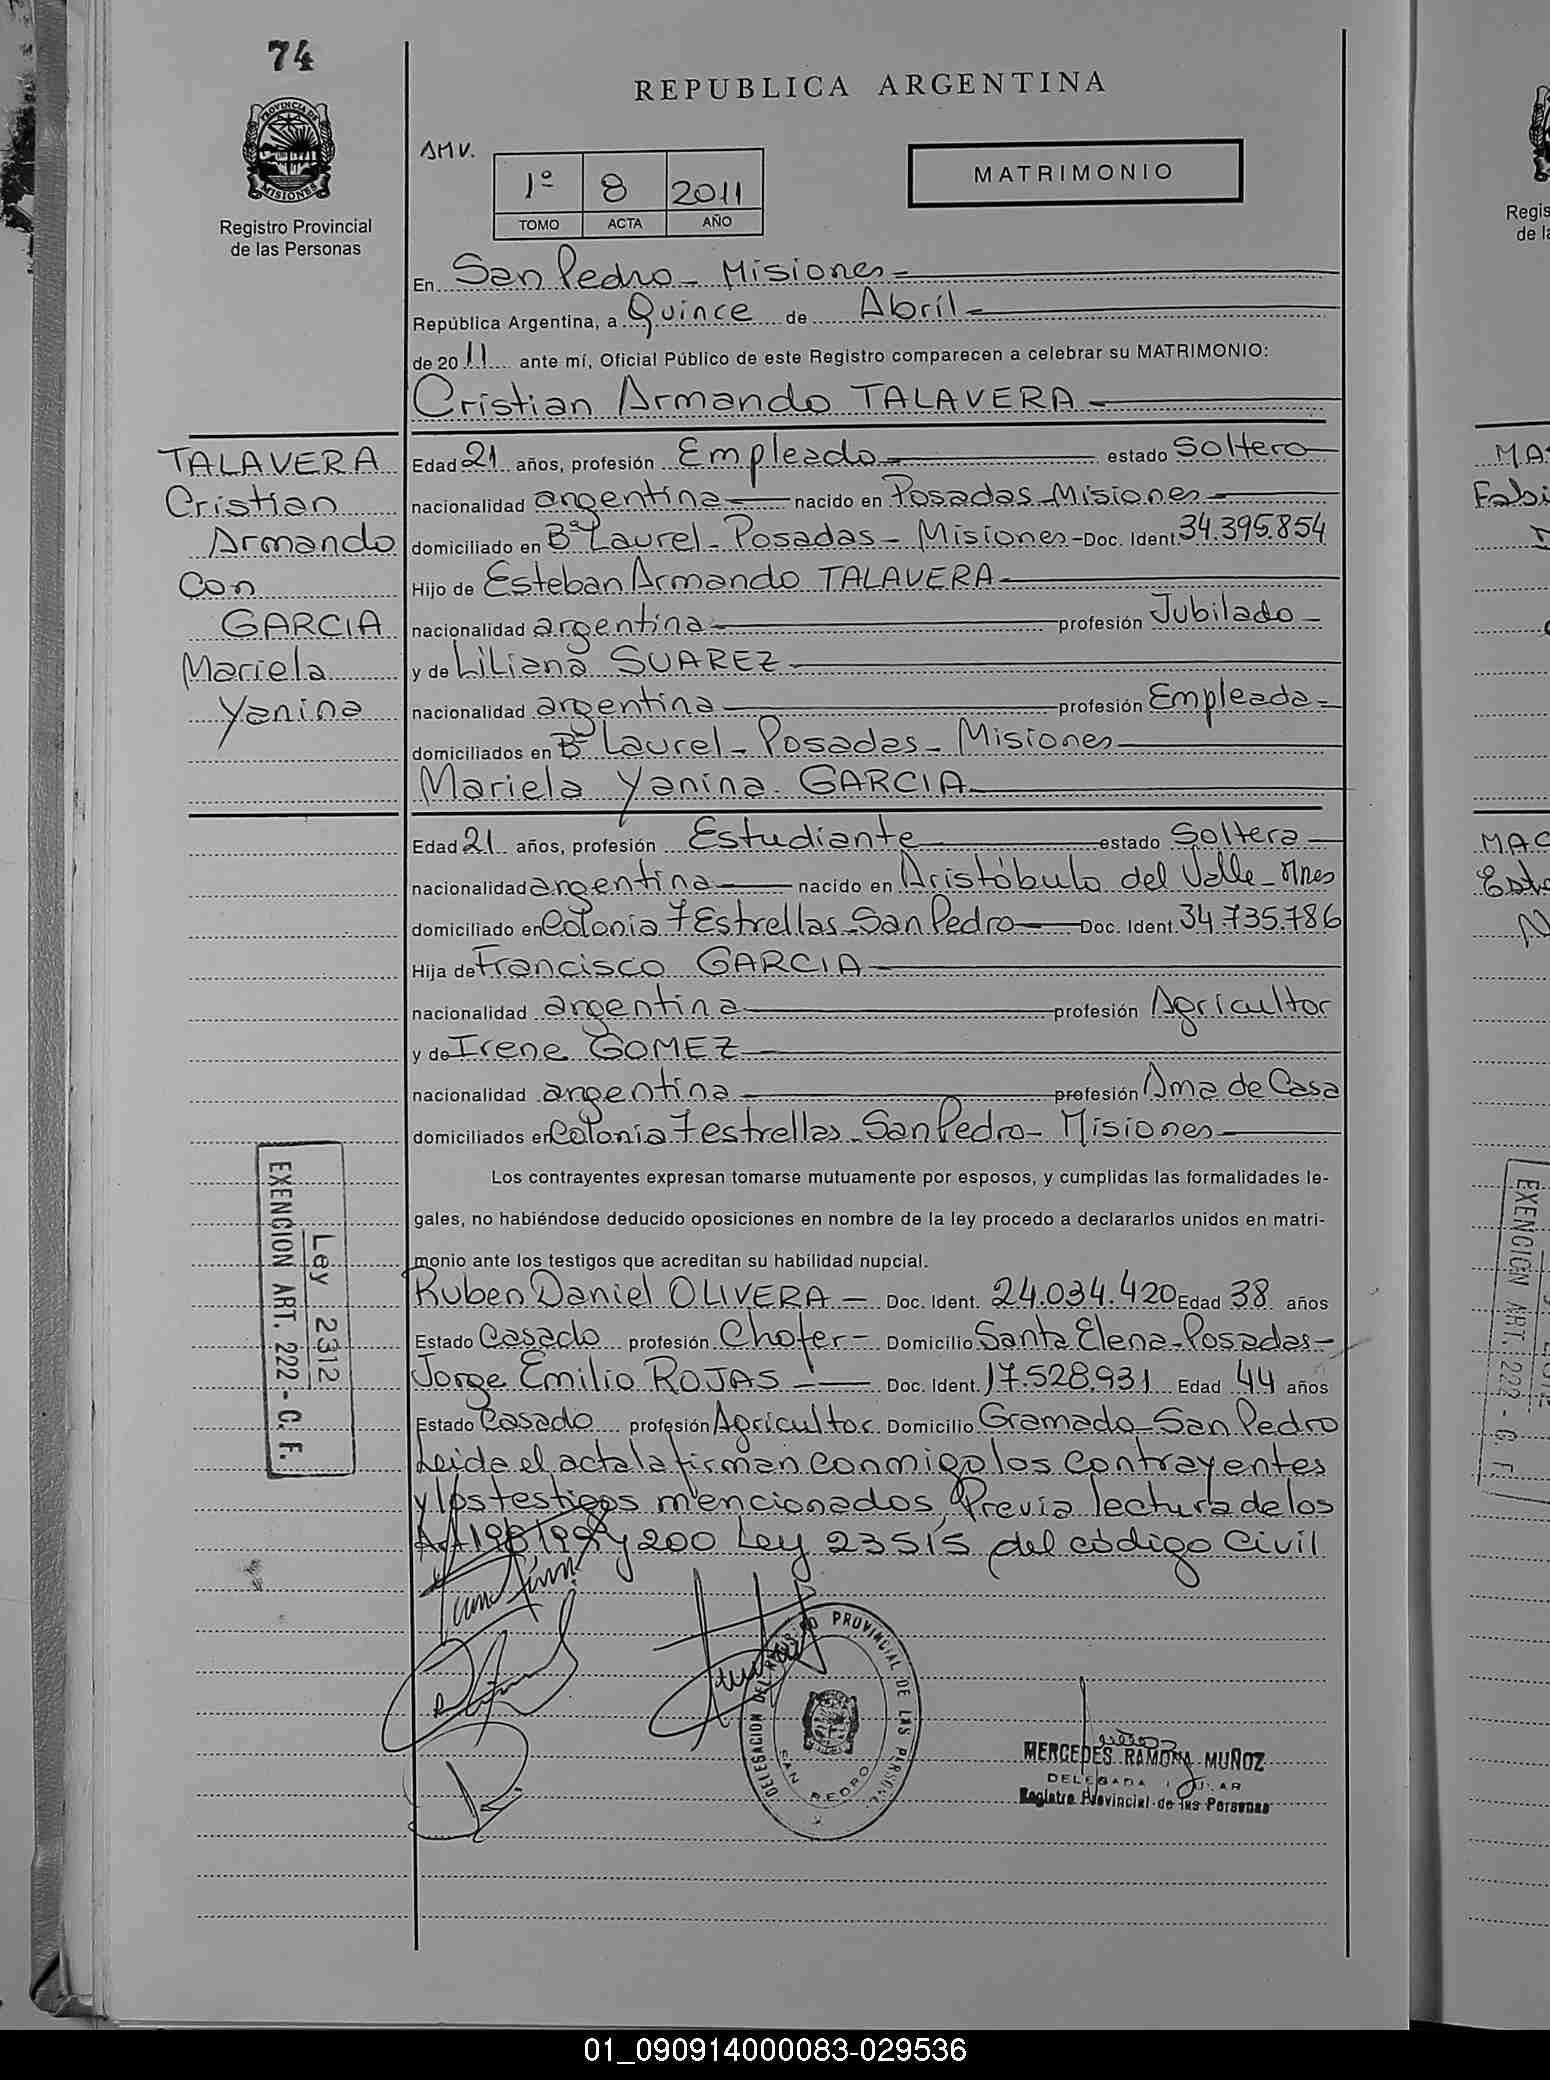 74
REPUBLICA ARGENTINA
PROVINCIA DE MISIONES
Registro Provincial
de las Personas
AMV.
1º 8 2011
TOMO ACTA AÑO
MATRIMONIO
En San Pedro - Misiones
República Argentina, a Quince de Abril
de 2011 ante mí, Oficial Público de este Registro comparecen a celebrar su MATRIMONIO:
Cristian Armando TALAVERA
TALAVERA
Cristian
Armando
Con
GARCIA
Mariela
Yanina
Edad 21 años, profesión Empleado estado Soltero
nacionalidad argentina nacido en Posadas - Misiones
domiciliado en Bº Laurel - Posadas - Misiones - Doc. Ident. 34.395.854
Hijo de Esteban Armando TALAVERA
nacionalidad argentina profesión Jubilado
y de Liliana SUAREZ
nacionalidad argentina profesión Empleada
domiciliados en Bº Laurel - Posadas - Misiones
Mariela Yanina GARCIA
Edad 21 años, profesión Estudiante estado Soltera
nacionalidad argentina nacido en Aristóbulo del Valle - Mnes
domiciliado en Colonia 7 Estrellas - San Pedro Doc. Ident. 34.735.786
Hija de Francisco GARCIA
nacionalidad argentina profesión Agricultor
y de Irene GOMEZ
nacionalidad argentina profesión Ama de Casa
domiciliados en Colonia 7 estrellas - San Pedro - Misiones
Los contrayentes expresan tomarse mutuamente por esposos, y cumplidas las formalidades le-
gales, no habiéndose deducido oposiciones en nombre de la ley procedo a declararlos unidos en matri-
monio ante los testigos que acreditan su habilidad nupcial.
Ruben Daniel OLIVERA - Doc. Ident. 24.034.420 Edad 38 años
Estado Casado profesión Chofer - Domicilio Santa Elena - Posadas -
Jorge Emilio ROJAS - Doc. Ident. 17.528.931 Edad 44 años
Estado Casado profesión Agricultor Domicilio Gramado - San Pedro
Leida el acta la firman conmigo los contrayentes
y los testigos mencionados, Previa lectura de los
Art 198 199 y 200 Ley 23515 del código Civil
Ley 2312
EXENCION ART. 222 - C. F.
DELEGACION DEL PROVINCIAL DE LAS
SAN PEDRO
MERCEDES RAMONA MUÑOZ
DELEGADA
Registro Provincial de las Personas
Regis
de la
MA
Fabi
MAC
Este
EXENCION ART. 222 - C. F.
01_090914000083-029536